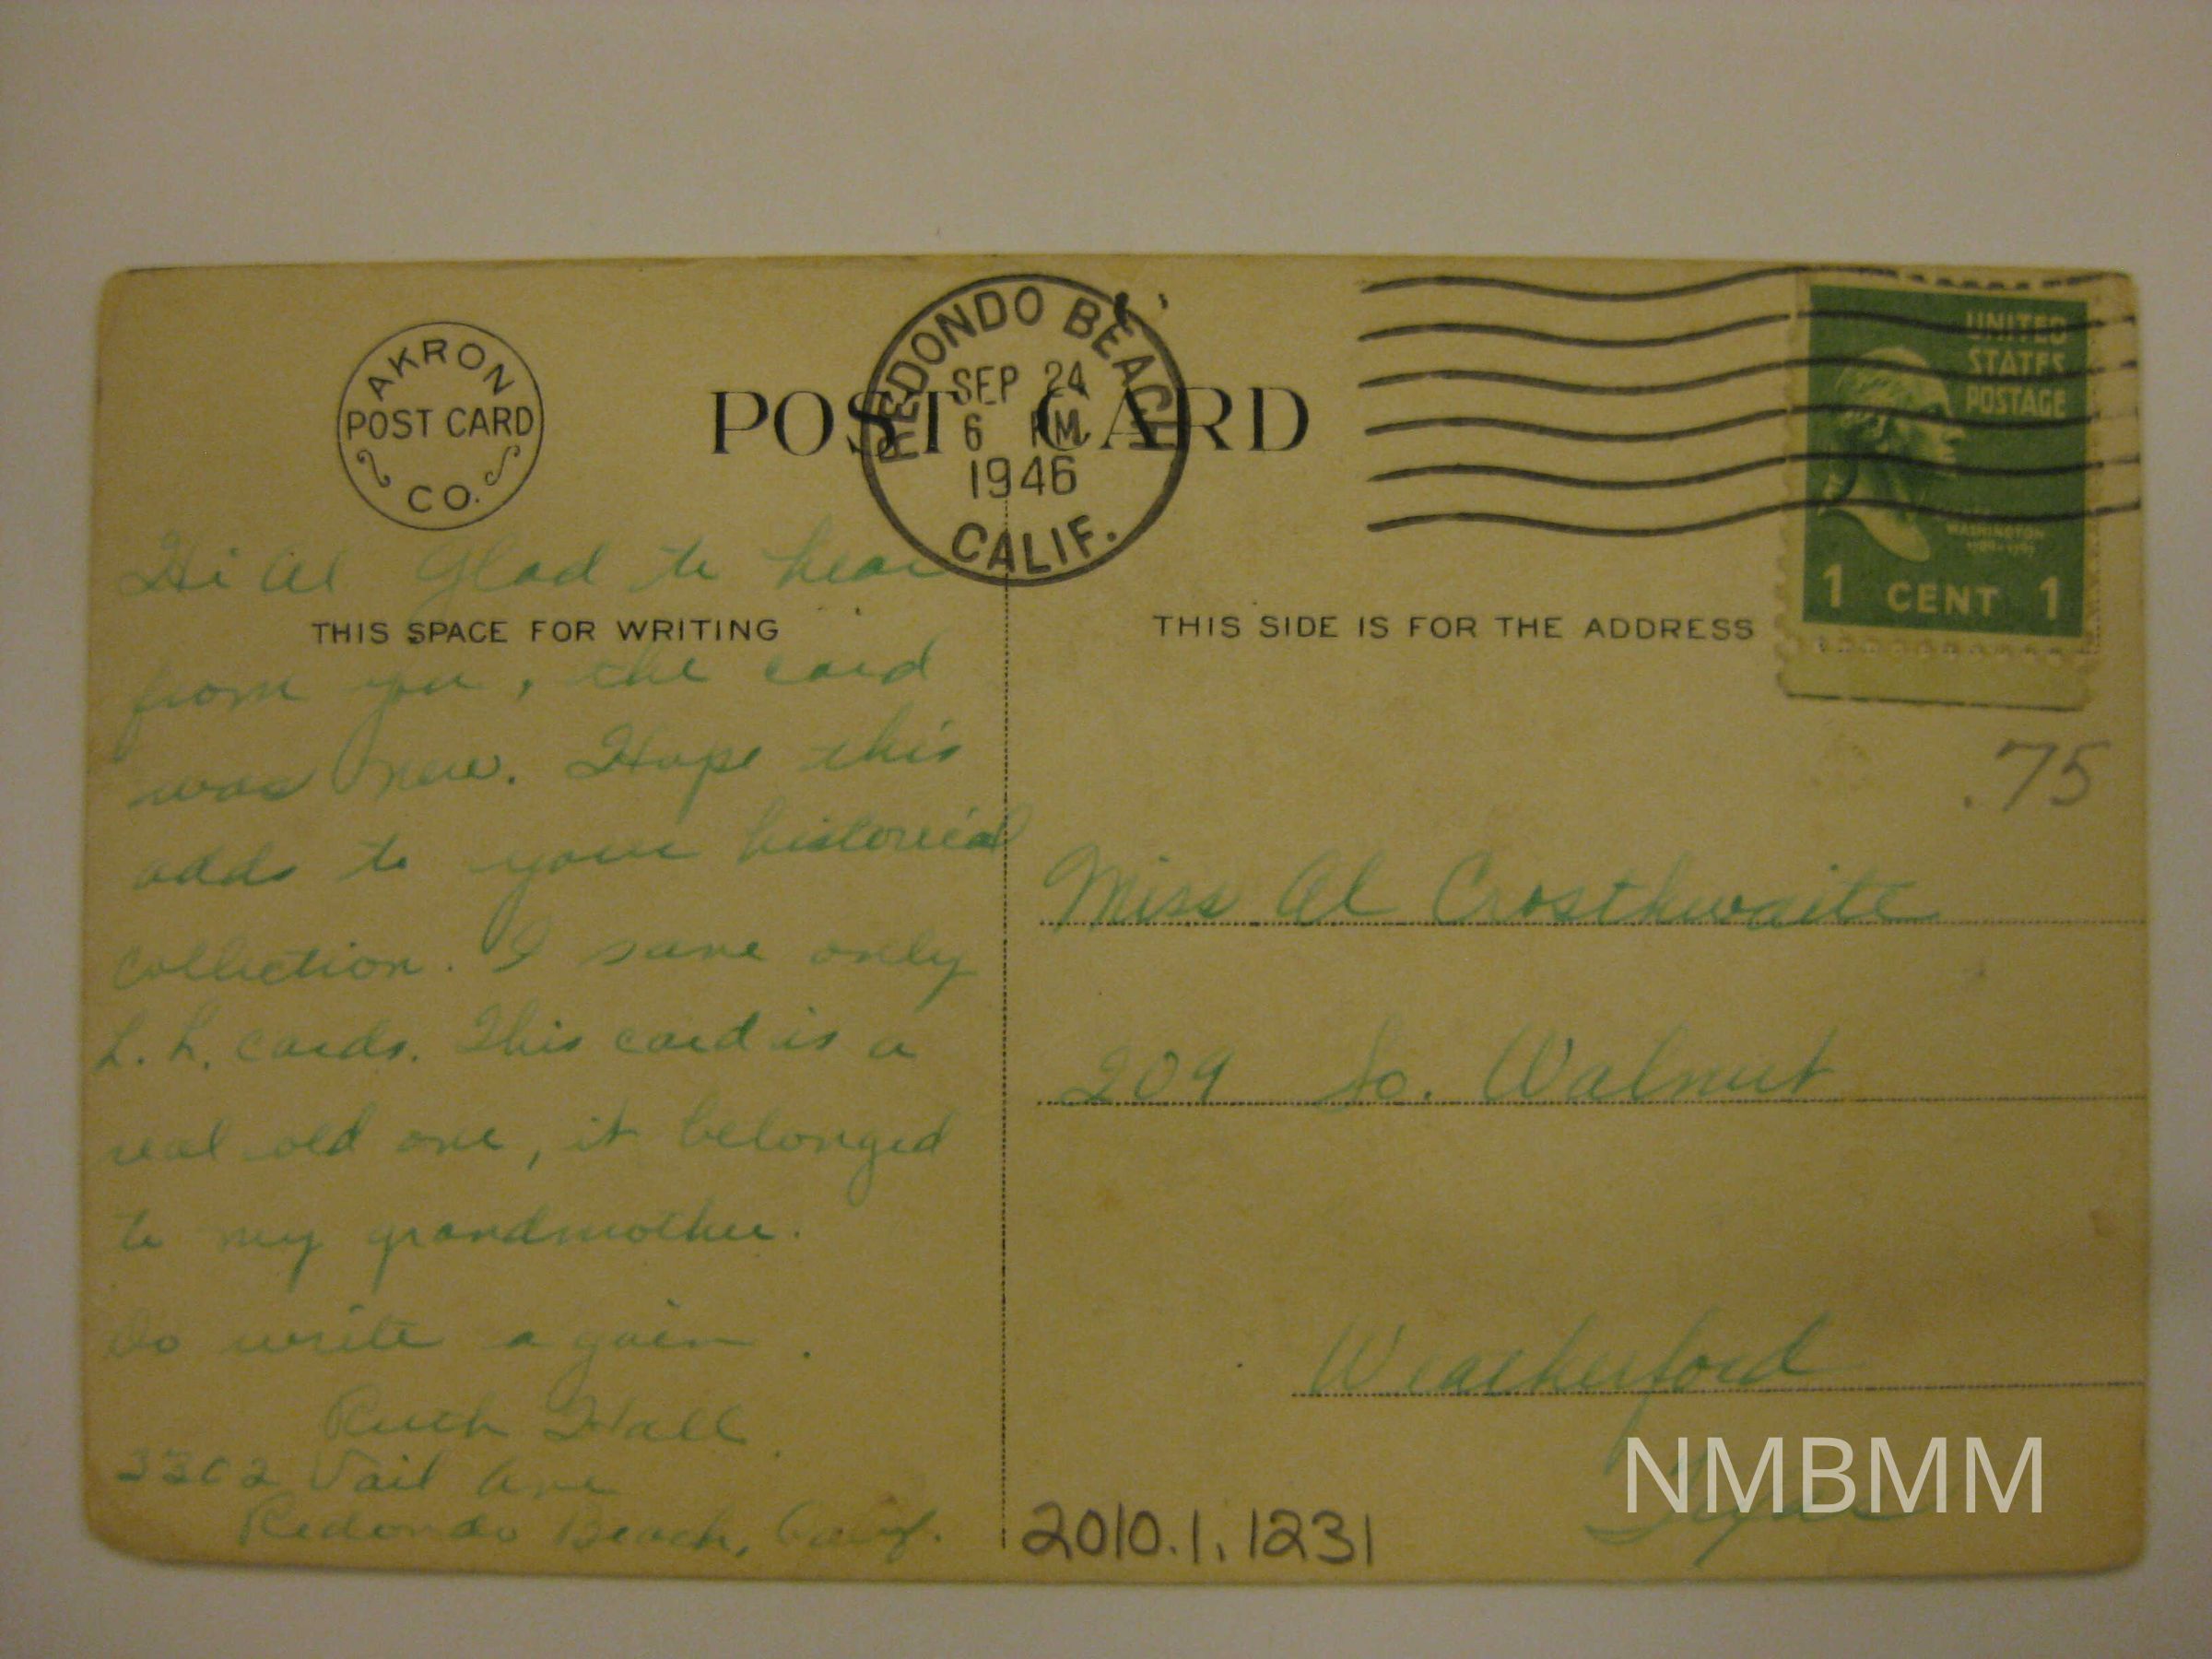 AKRON
POST CARD
CO.
POST CARD
REDONDO BEACH
SEP 24
6 PM
1946
CALIF.
UNITED
STATES
POSTAGE
WASHINGTON
1789-1797
1 CENT 1
Hi Al Glad to hear
THIS SPACE FOR WRITING
from you, the card
was new. Hope this
adds to your historical
collection. I save only
L.L. cards. This card is a
real old one, it belonged
to my grandmother.
Do write again.
Ruth Hall.
3302 Vail Ave
Redondo Beach, Calif.
THIS SIDE IS FOR THE ADDRESS
.75
Miss Al Crosthwaite
209 So. Walnut
Weatherford
Texas
2010.1.1231
NMBMM